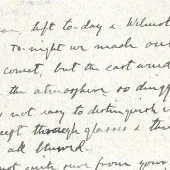 left to-day a
To-night we made our
comet, but the east wind
the atmosphere so dingy
not easy to distinguish
except through glasses & thi
all blurred.
not quite sure from your